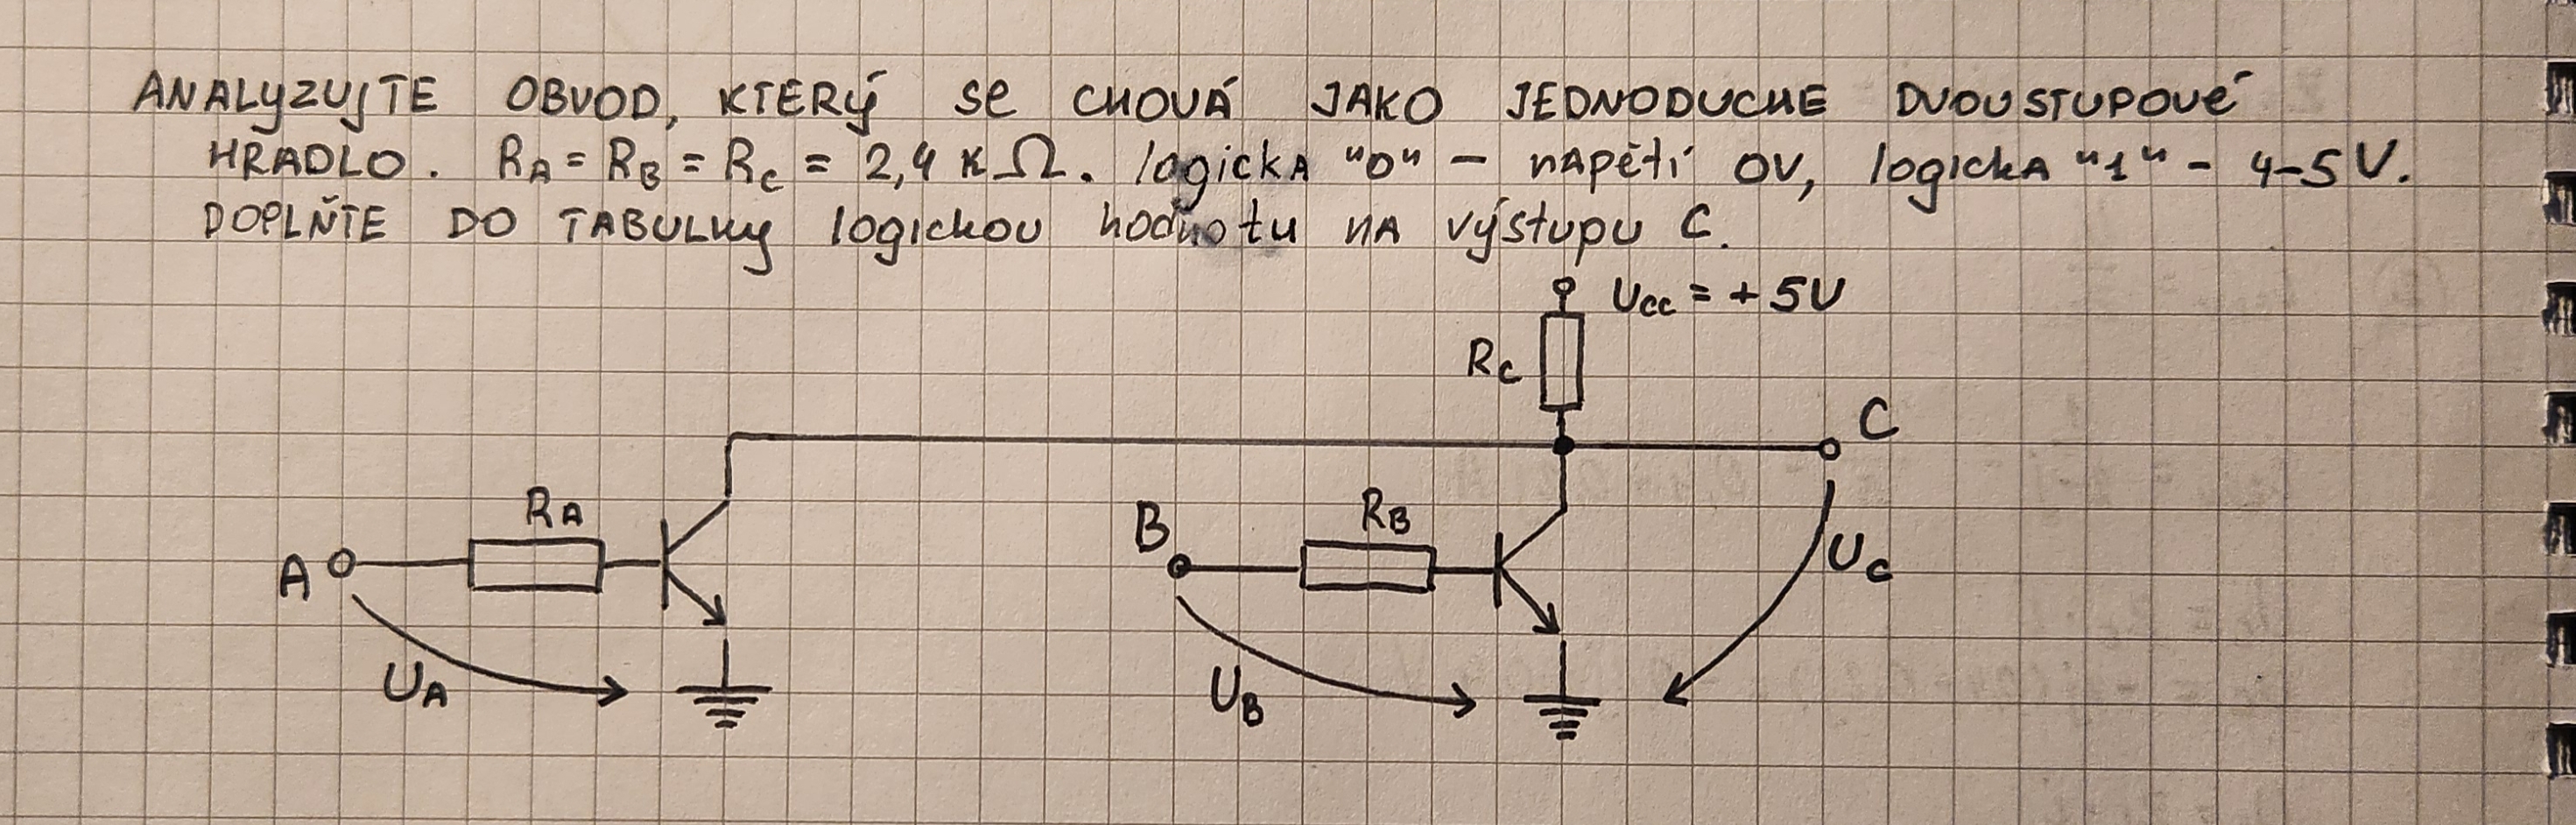 ANALYZUJTE OBVOD, KTERÝ SE CHOVÁ JAKO JEDNODUCHE DVOUSTUPOVÉ
HRADLO. RA = RB = RC = 2,4 KΩ. logickA "0" – nAPětí OV, logickA "1" - 4-5 V.
DOPLŇTE DO TABULKY logickou hodnotu nA výstupu C.
Ucc = + 5V
RC
C
RA
B
RB
A
UC
UA
UB